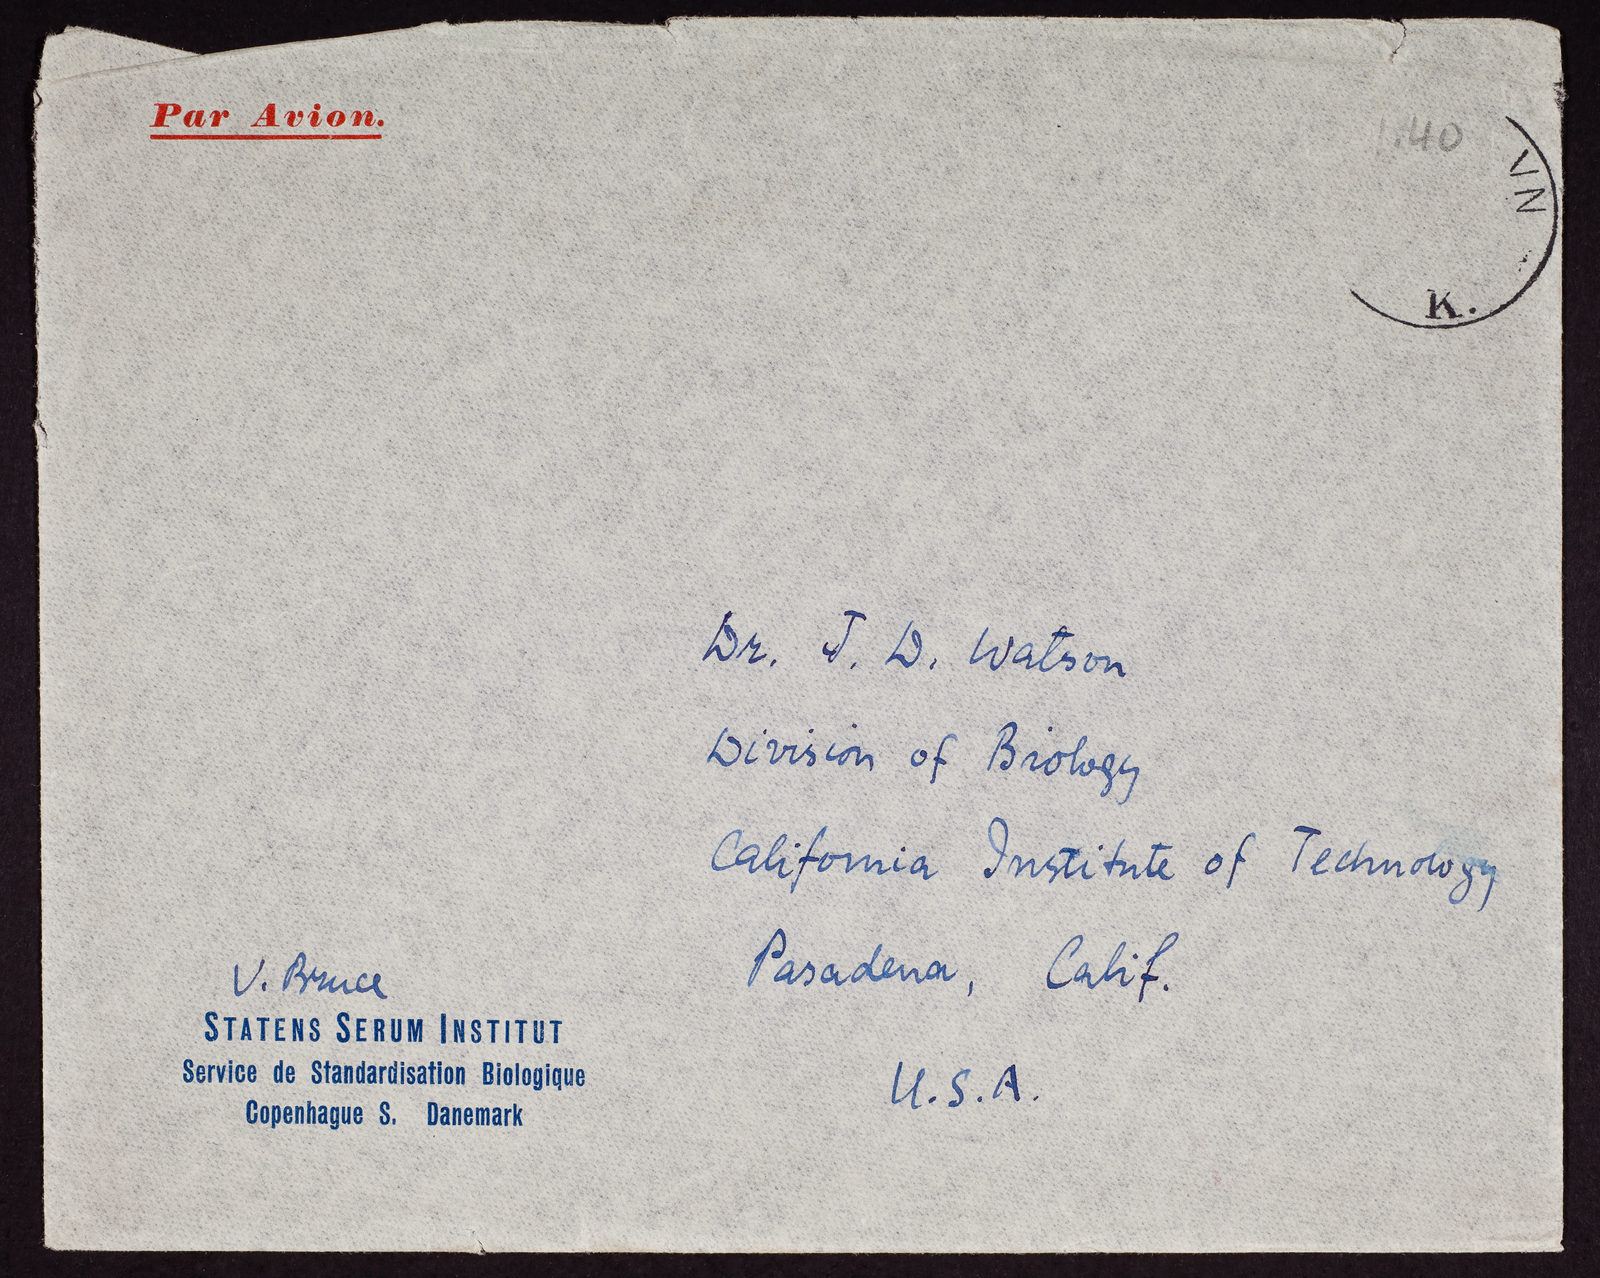 Par Avion.
1.40
VN
K.
Dr. J. D. Watson
Division of Biology
California Institute of Technology
Pasadena, Calif.
U.S.A.
V. Bruce
STATENS SERUM INSTITUT
Service de Standardisation Biologique
Copenhague S. Danemark